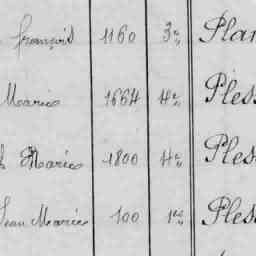 françois 1160 3e Plan
Marie 1664 4e Ples
Marie 1800 4e Ples
Jean Marie 100 1re Ples